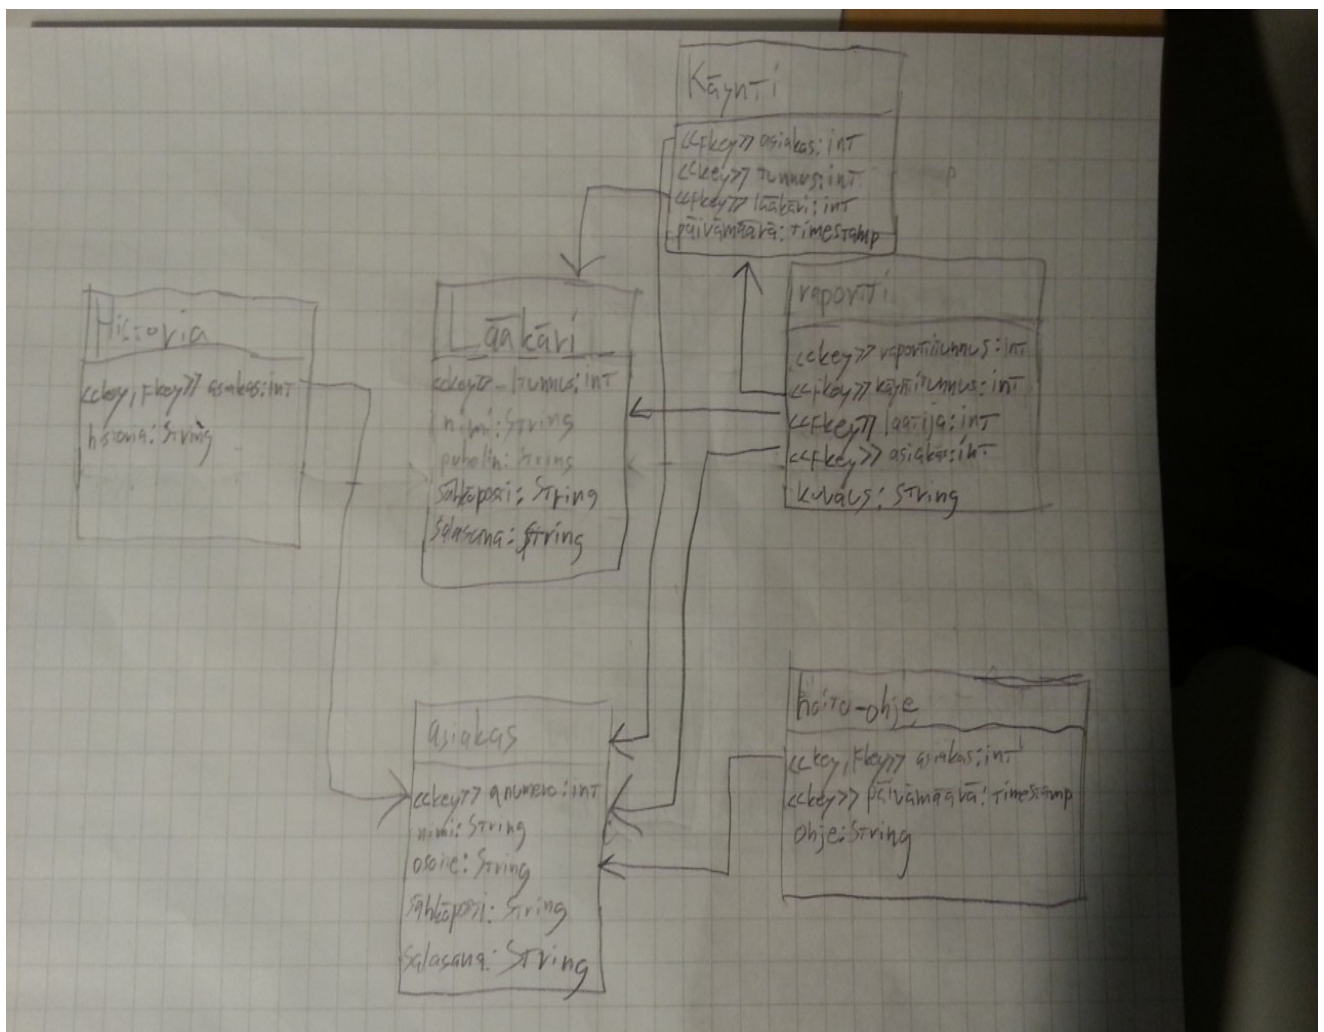 Käynti
<<fkey>> asiakas: int
<<key>> tunnus: int
<<fkey>> lääkäri: int
päivämäärä: timestamp
Historia
<<key, fkey>> asiakas: int
historia: String
Lääkäri
<<key>> ltunnus: int
nimi: String
puhelin: String
sähköposti: String
salasana: String
raportti
<<key>> raporttitunnus: int
<<fkey>> käyntitunnus: int
<<fkey>> laatija: int
<<fkey>> asiakas: int
kuvaus: String
asiakas
<<key>> anumero: int
nimi: String
osoite: String
sähköposti: String
salasana: String
hoito-ohje
<<key, fkey>> asiakas: int
<<key>> päivämäärä: timestamp
ohje: String